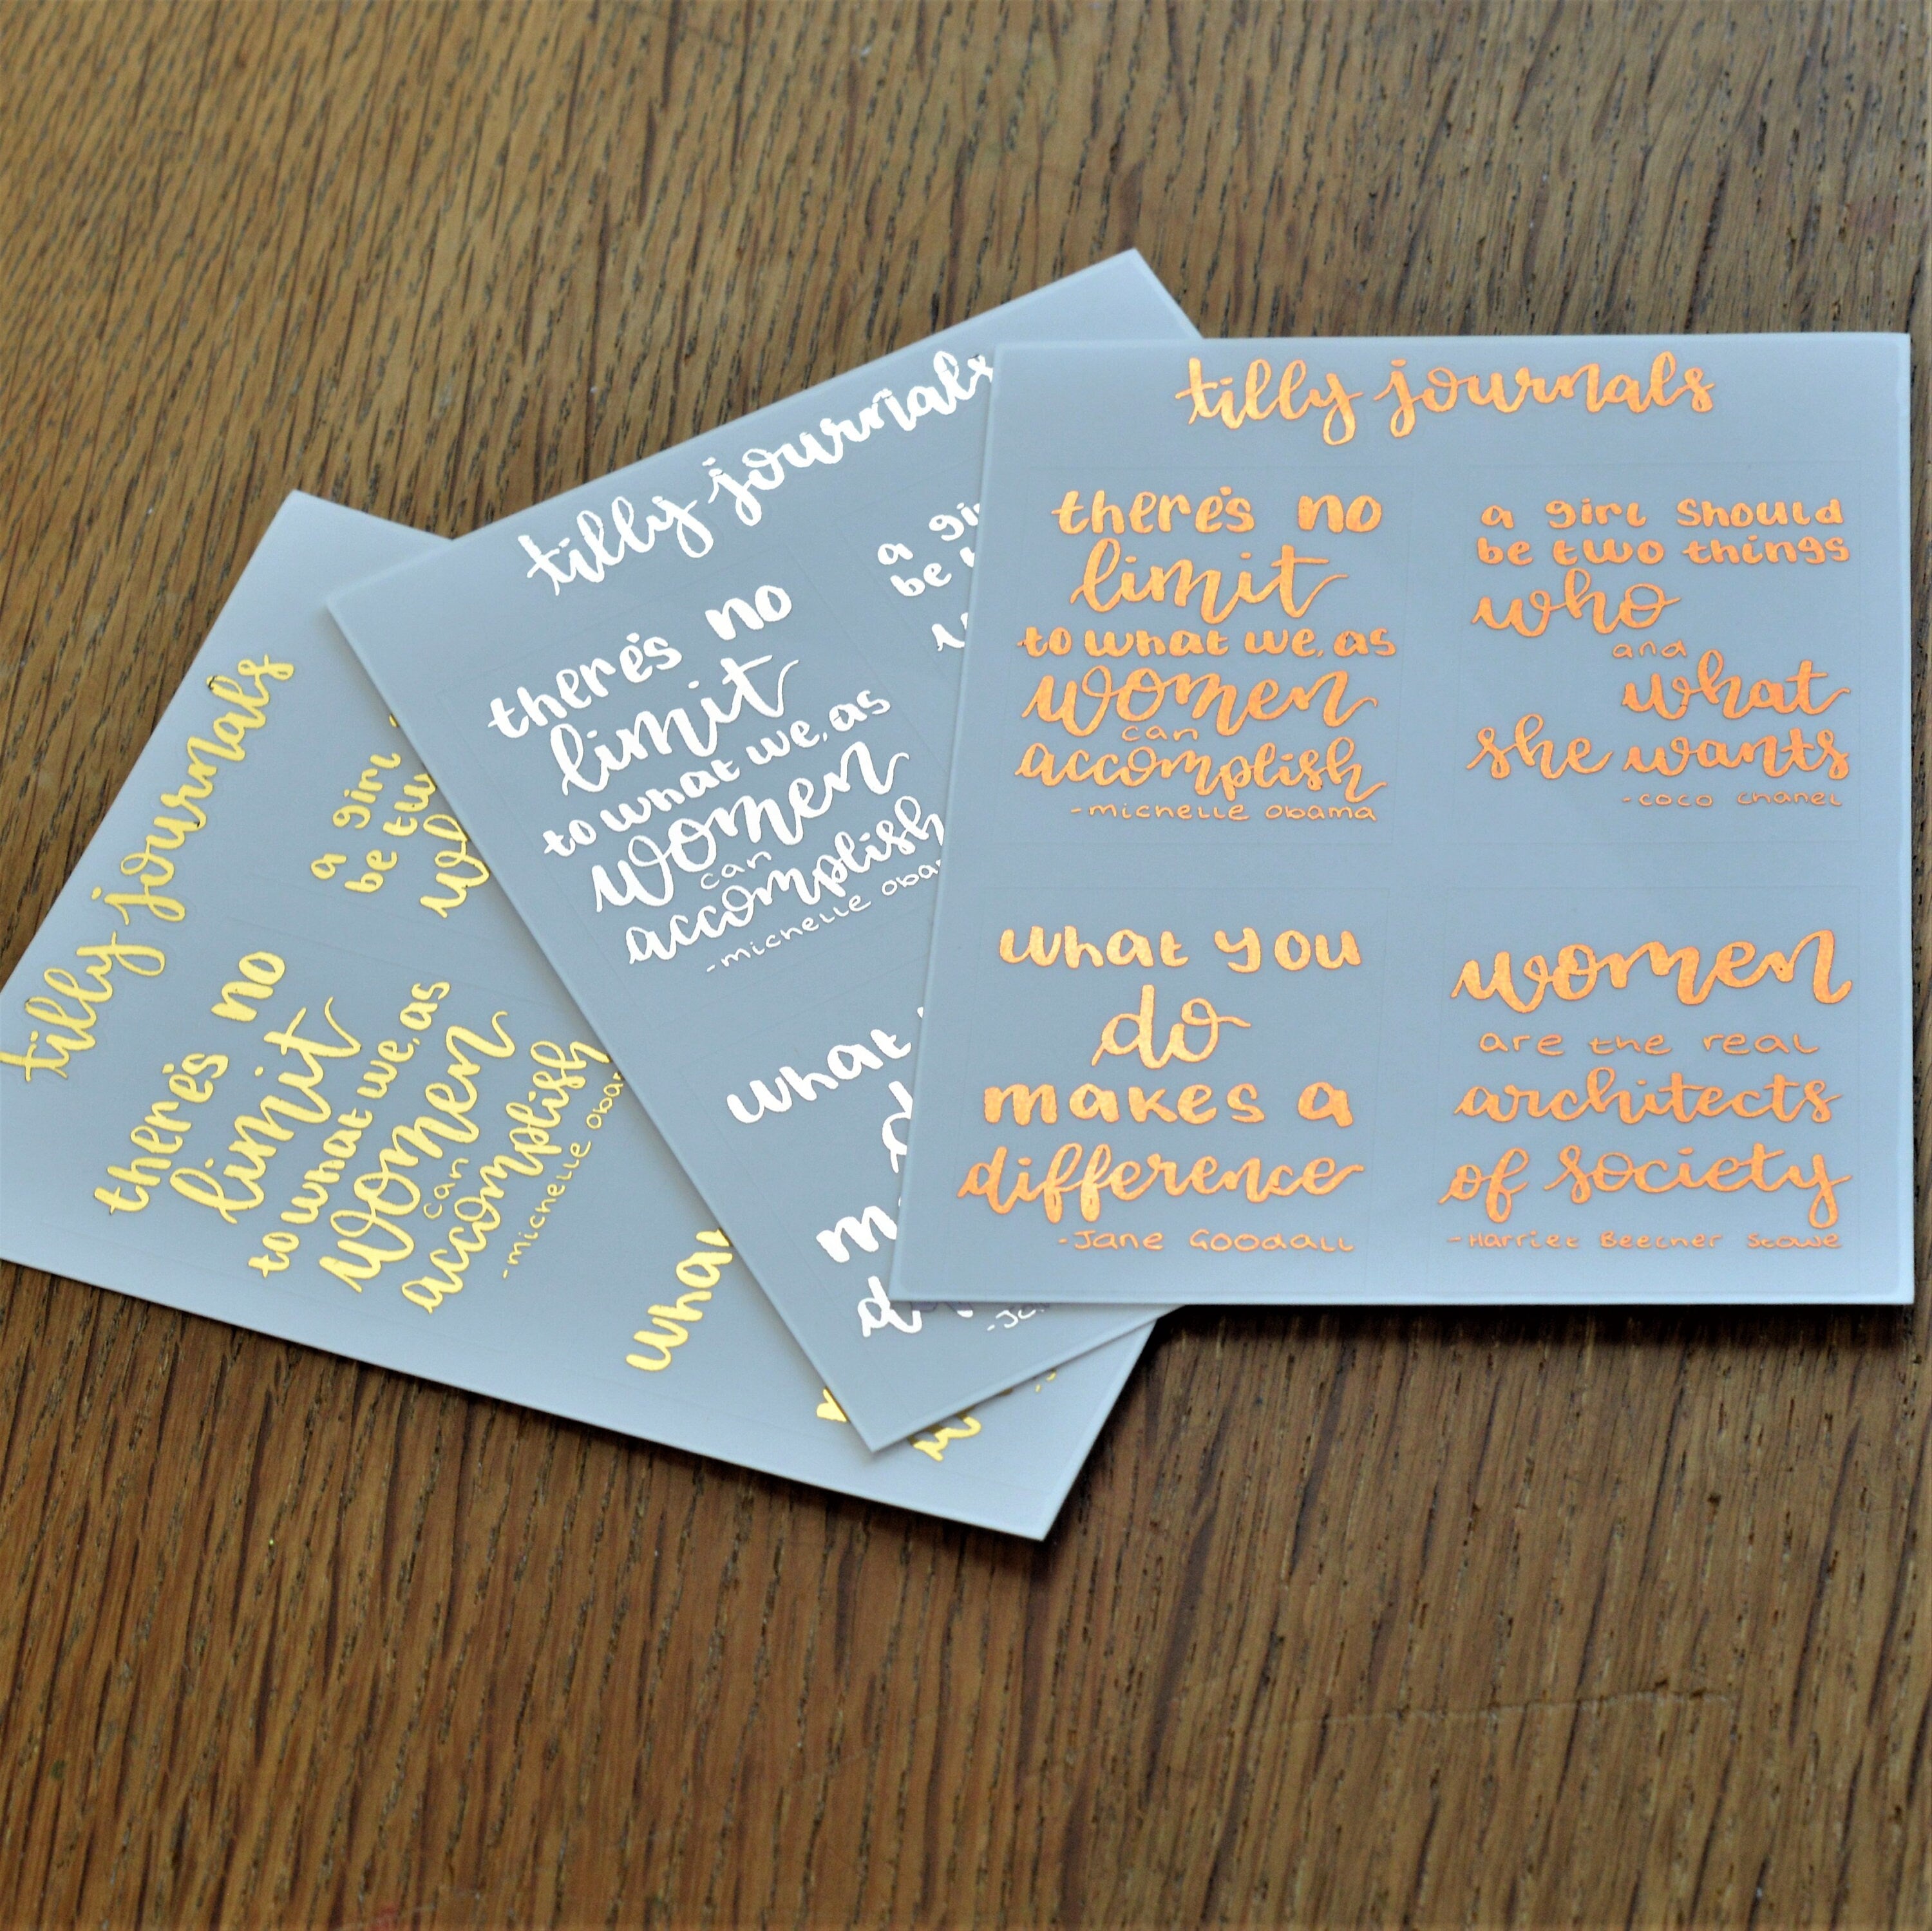 tilly journals
there's no
limit
to what we, as
women
can
accomplish
-michelle obama
a girl should
be two things
who
and
what
she wants
-coco chanel
what you
do
makes a
difference
-Jane Goodall
women
are the real
architects
of society
-Harriet Beecher Stowe
tilly journals
there's no
limit
to what we, as
women
can
accomplish
-michelle
a
be
what
tilly journals
there's no
limit
to what we, as
women
can
accomplish
-michelle
a girl
be